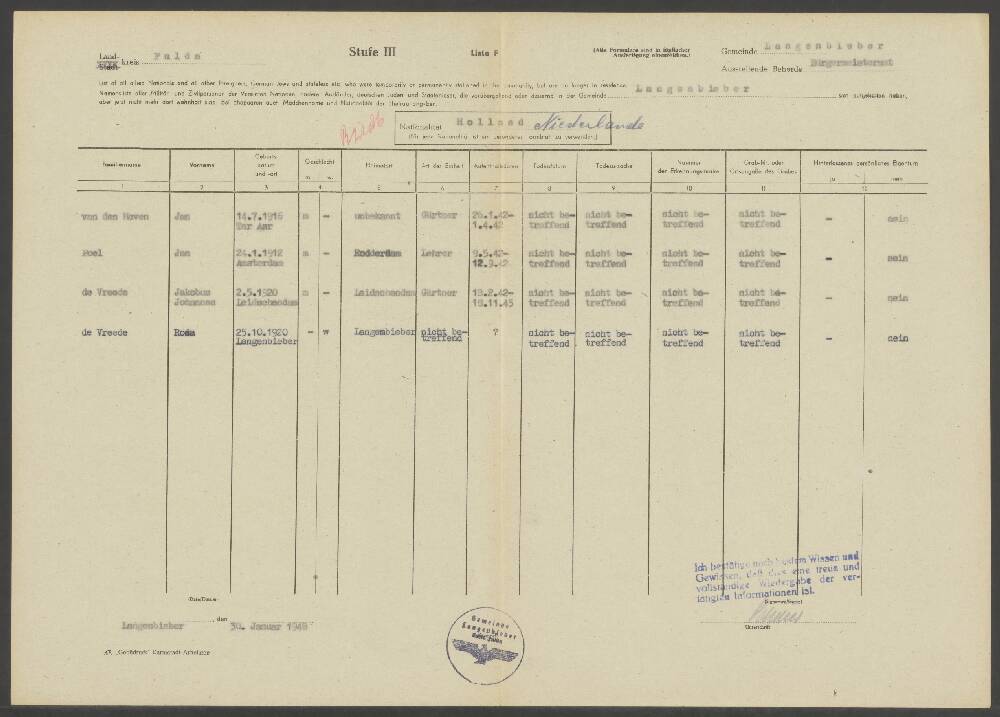 Land-
Stadt- kreis Fulda
Stufe III
Liste F
(Alle Formulare sind in 
Ausfertigung einzureichen.)
Gemeinde Langenbieber
Ausstellende Behörde Bürgermeisteramt
List of all allied Nationals and all other foreigners, German Jews and stateless etc. who were temporarily or permanently stationed in the community, but are no longer in residence.
Namensliste aller Militär- und Zivilpersonen der Vereinten Nationen, anderer Ausländer, deutschen Juden und Staatenloser, die vorübergehend oder dauernd in der Gemeinde Langenbieber sich aufgehalten haben,
aber jetzt nicht mehr dort wohnhaft sind. Bei Ehepaaren auch Mädchenname und Nationalität der Ehefrau angeben.
Nationalität Holland Niederlande
(Für jede Nationalität ist ein besonderes Formblatt zu verwenden)
Familienname Vorname Geburts- datum und -ort Geschlecht m. w. Heimatort Art der Einheit Aufenthaltsdauer Todesdatum Todesursache Nummer der Erkennungsmarke Grab-Nr. oder Ortsangabe des Grabes Hinterlassenes persönliches Eigentum ja nein
1 2 3 4 5 6 7 8 9 10 11 12
van den Hoven Jan 14.7.1916 m - unbekannt Gärtner 26.1.42- nicht be- nicht be- nicht be- nicht be- - nein
Ter Aar 1.4.42 treffend treffend treffend treffend
Poel Jan 24.1.1912 m - Rodderdam Lehrer 9.5.42- nicht be- nicht be- nicht be- nicht be- - nein
Amsterdam 12.9.42 treffend treffend treffend treffend
de Vreede Jakobus 2.5.1920 m - Leidschendam Gärtner 13.2.42- nicht be- nicht be- nicht be- nicht be- - nein
Johannes Leidschendam 18.11.45 treffend treffend treffend treffend
de Vreede Rosa 25.10.1920 - w Langenbieber nicht be- ? nicht be- nicht be- nicht be- nicht be- - nein
Langenbieber treffend treffend treffend treffend treffend
Ich bestätige nach bestem Wissen und
Gewissen, daß dies eine treue und
vollständige Wiedergabe der ver-
langten Informationen ist.
(Date/Datum)
Langenbieber, den 30. Januar 1949
(Signature/Siegel)
Unterschrift
Gemeinde
Langenbieber
Kreis Fulda